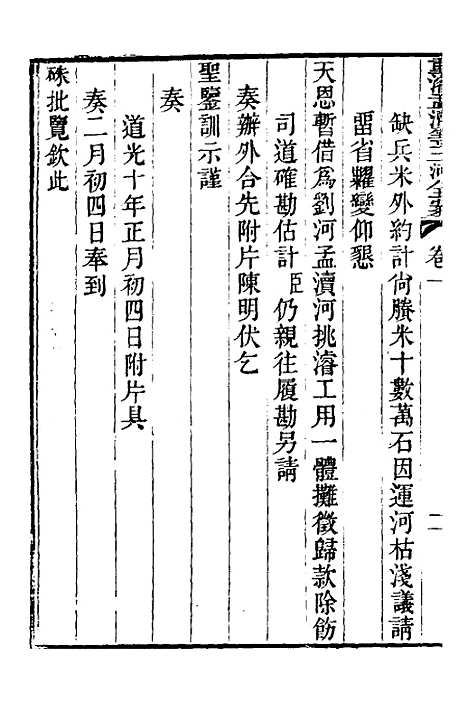 重濬孟瀆等三河全案 卷一
缺兵米外約計尙賸米十數萬石因運河枯淺議請
畱省糶變仰懇
天恩暫借爲劉河孟瀆河挑濬工用一體攤徵歸款除飭
司道確勘估計臣仍親往履勘另請
奏辦外合先附片陳明伏乞
聖鑒訓示謹
奏
道光十年正月初四日附片具
奏二月初四日奉到
硃批覽欽此